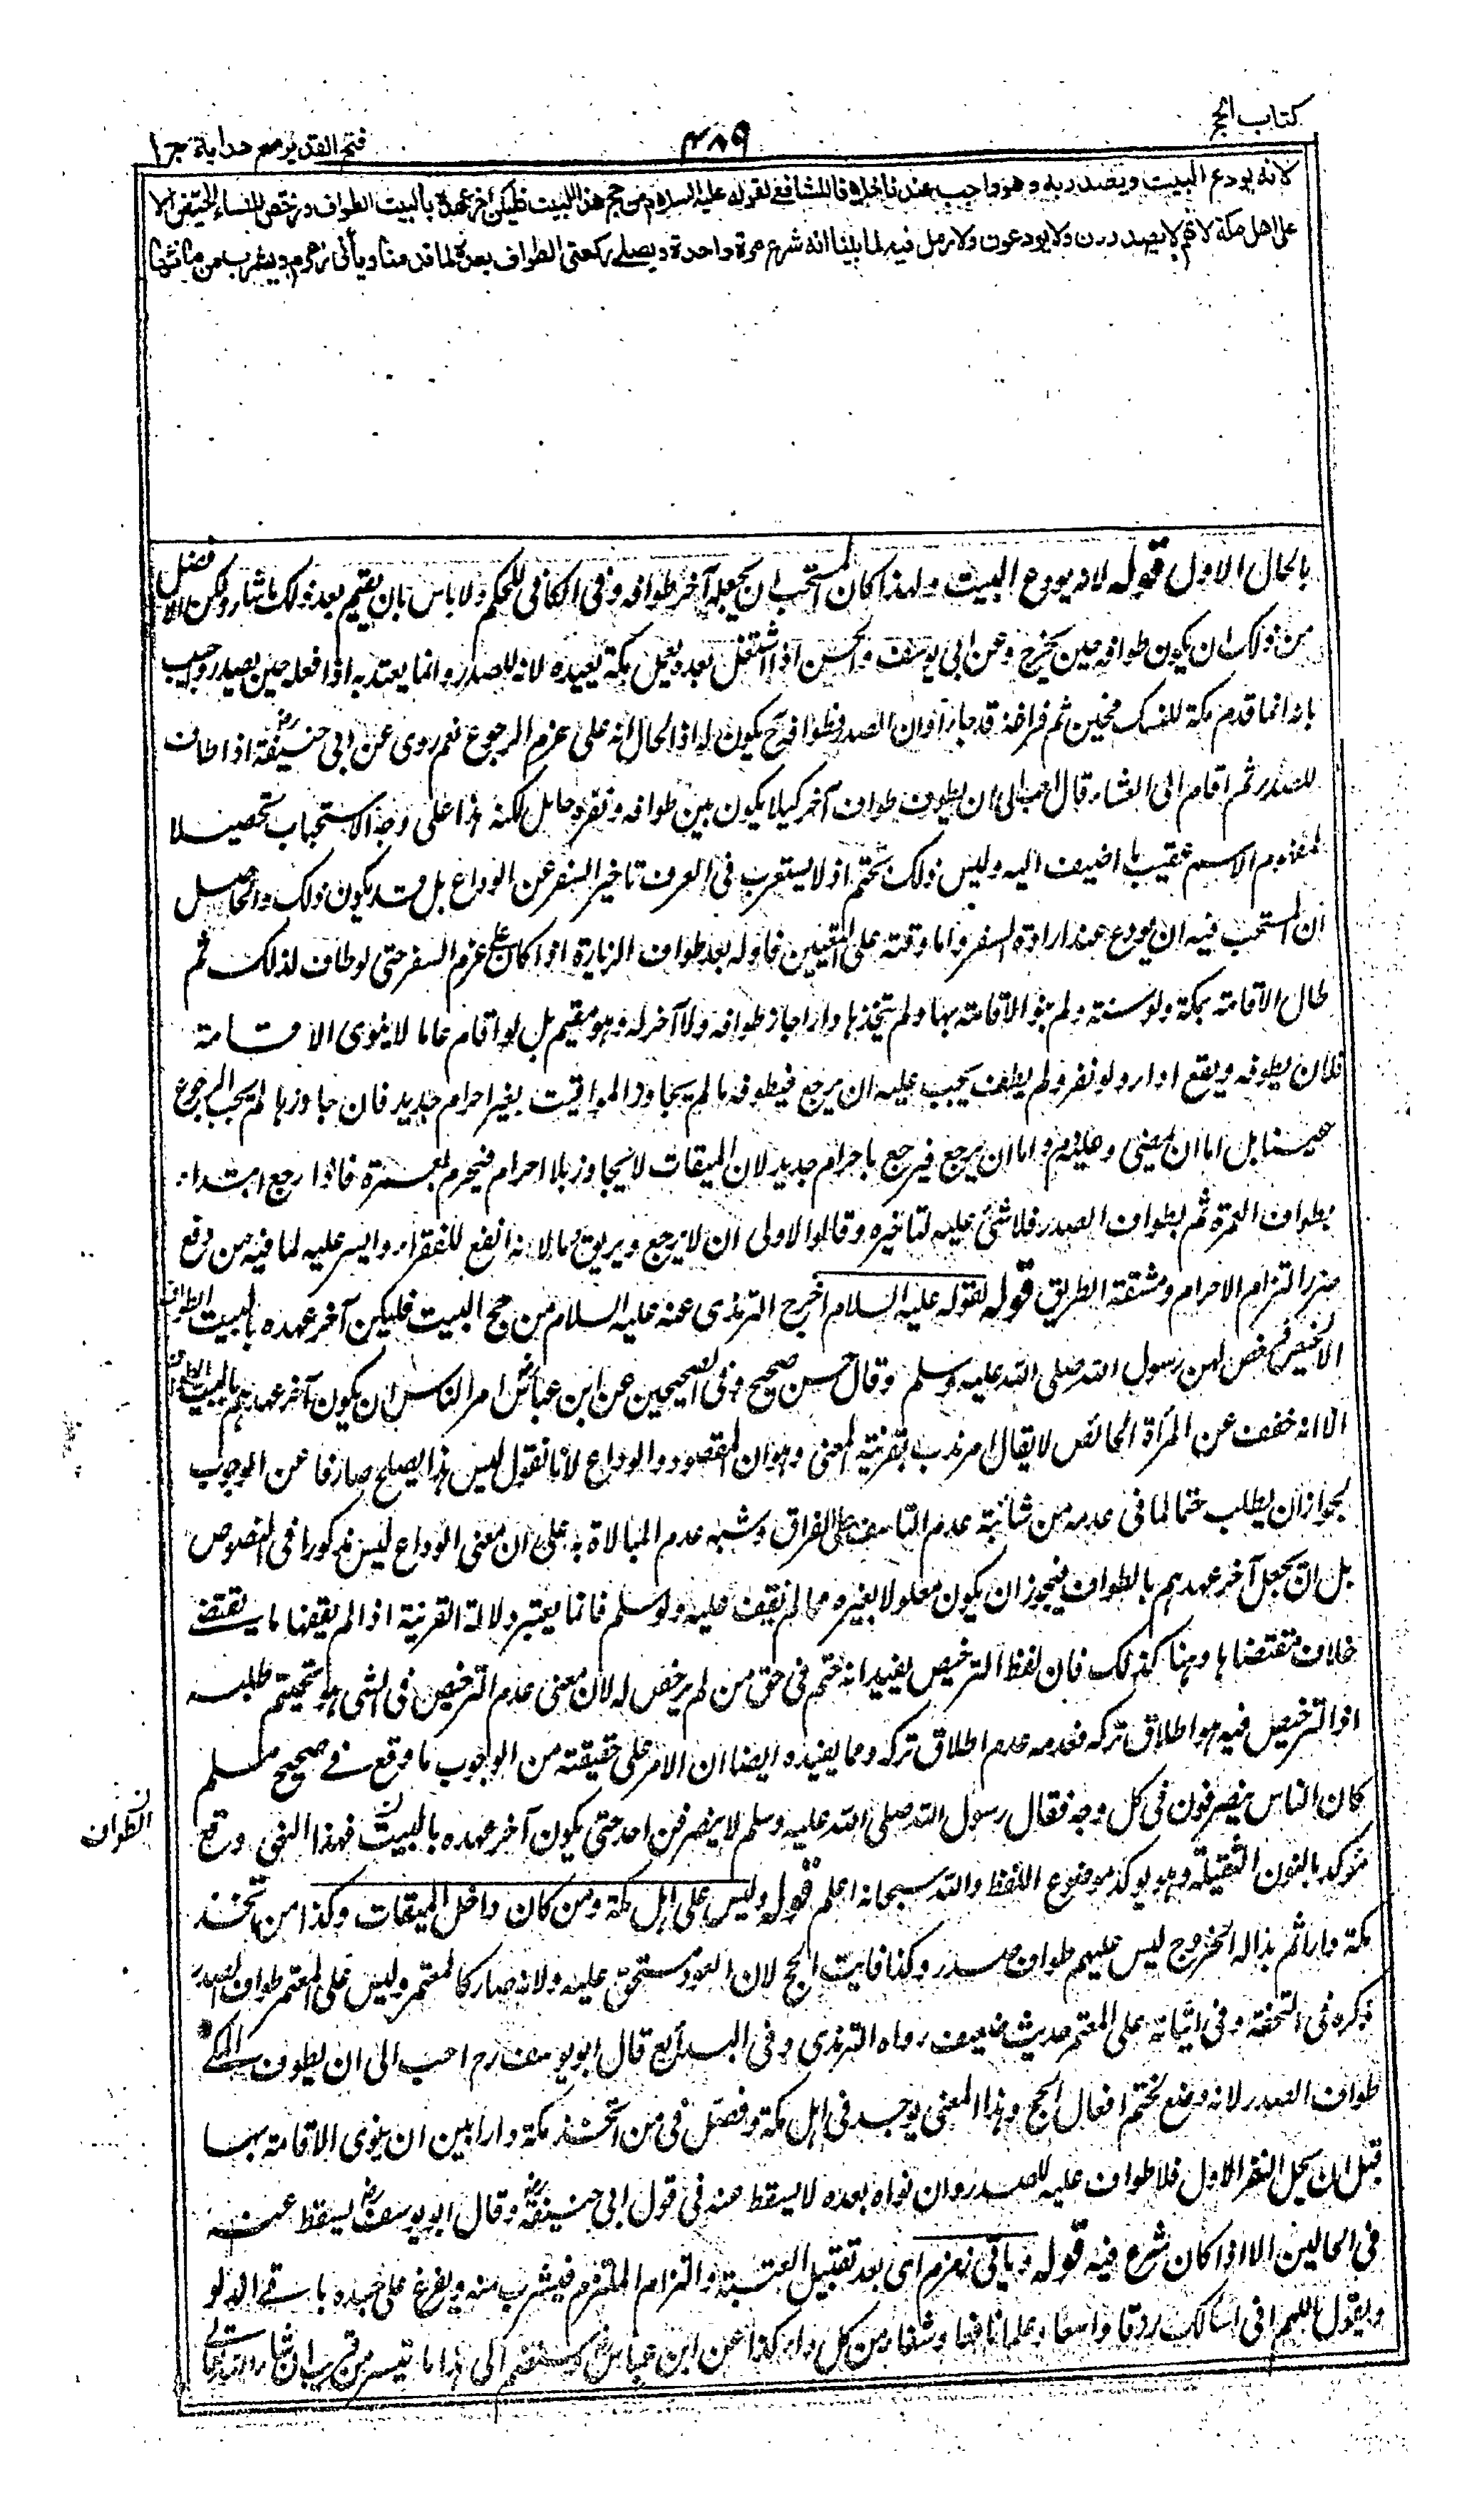 كتاب الحج
۴۸۹
فتح القدير مع هداية ج ۱
لانه يودع البيت ويصدر به وهو واجب عندنا خلافا للشافعي لقوله عليه السلام من حج هذا البيت فليكن آخر عهده بالبيت الطواف ورخص للنساء الحيض الا
على اهل مكة لانهم لا يصدرون ولا يودعون ولا رمل فيه لما بينا انه شرع مرة واحدة ويصلي ركعتي الطواف بعده لما قدمنا ويأتي زمزم ويشرب من مائها
بالحال الاول قوله لانه يودع البيت ولهذا كان المستحب ان يجعله آخر طوافه وفي الكافي للحاكم ولا باس بان يقيم بعد ذلك ما شاء ولكن الافضل
من ذلك ان يكون طوافه حين يخرج وعن ابي يوسف والحسن اذا اشتغل بعده بعمل بمكة يعيده لانه للصدر وانما يعتد به اذا فعله حين يصدر واجيب
بانه انما قدم مكة للنسك فحين تم فراغه منه جاء اوان الصدر فطوافه ح يكون له اذ الحال انه على عزم الرجوع نعم روى عن ابي حنيفة رض اذا طاف
للصدر ثم اقام الى العشاء قال احب الي ان يطوف طوافا آخر كيلا يكون بين طوافه ونفره حائل لكنه هذا على وجه الاستحباب تحصيلا
لمفهوم الاسم عقيب ما اضيف اليه وليس ذلك بحتم اذ لا يستغرب في العرف تاخير السفر عن الوداع بل قد يكون ذلك والحاصل
ان المستحب فيه ان يودع عند ارادة السفر واما وقته على التعيين فاوله بعد طواف الزيارة اذا كان على عزم السفر حتى لو طاف لذلك ثم
طال الاقامة بمكة ولو سنة ولم ينو الاقامة بها ولم يتخذها دارا جاز طوافه ولا آخر له وهو مقيم بل لو اقام عاما لا ينوى الاقامة
فلان يطوفه ويقع اداء ولو نفر ولم يطف يجب عليه ان يرجع فيطوفه ما لم يجاوز المواقيت بغير احرام جديد فان جاوزها لم يجب الرجوع
عينا بل اما ان يمضي وعليه دم واما ان يرجع فيرجع باحرام جديد لان الميقات لا يجاوز بلا احرام فيحرم بعمرة فاذا رجع ابتداء
بطواف العمرة ثم بطواف الصدر فلا شئ عليه لتاخيره وقالوا الاولى ان لا يرجع ويريق دما لانه انفع للفقراء وايسر عليه لما فيه من دفع
ضرر التزام الاحرام ومشقة الطريق قوله لقوله عليه السلام اخرج الترمذي عنه عليه السلام من حج البيت فليكن آخر عهده بالبيت الطواف
الا الحيض فرخص لهن رسول الله صلى الله عليه وسلم وقال حسن صحيح وفي الصحيحين عن ابن عباس رض امر الناس ان يكون آخر عهدهم بالبيت الطواف
الا انه خفف عن المرأة الحائض لا يقال امر ندب بقرينة المعنى وهو ان المقصود الوداع لانا نقول ليس هذا يصلح صارفا عن الوجوب
لجواز ان يطلب حتما لما في عدمه من شائبة عدم التاسف على الفراق وشبه عدم المبالاة به على ان معنى الوداع ليس مذكورا في النصوص
بل ان يجعل آخر عهدهم بالطواف فيجوز ان يكون معلولا بغيره مما لم نقف عليه ولو سلم فانما يعتبر دلالة القرينة اذا لم يقفها ما يقتضي
خلاف مقتضاها وهنا كذلك فان لفظ الترخيص يفيد انه حتم في حق من لم يرخص له لان معنى عدم الترخيص في الشئ هو تحتيم طلبه
اذ الترخيص فيه هو اطلاق تركه فعدمه عدم اطلاق تركه ومما يفيده ايضا ان الامر على حقيقته من الوجوب ما وقع في صحيح مسلم
كان الناس ينصرفون في كل وجه فقال رسول الله صلى الله عليه وسلم لا ينصرفن احد حتى يكون آخر عهده بالبيت فهذا النهي وقع
الطواف
مؤكدا بالنون الثقيلة وهو يؤكد موضوع اللفظ والله سبحانه اعلم قوله وليس على اهل مكة ومن كان داخل الميقات وكذا من اتخذ
مكة دارا ثم بدا له الخروج ليس عليهم طواف صدر وكذا فايت الحج لان العود مستحق عليه ولانه صار كالمعتمر وليس على المعتمر طواف الصدر
ذكره في التحفة وفي اثباته على المعتمر حديث ضعيف رواه الترمذي وفي البدائع قال ابو يوسف رح احب الي ان يطوف المكي
طواف الصدر لانه وضع لختم افعال الحج وهذا المعنى يوجد في اهل مكة وفصل في من اتخذ مكة دارا بين ان ينوى الاقامة بها
قبل ان يحل النفر الاول فلا طواف عليه للصدر وان نواه بعده لا يسقط عنه في قول ابي حنيفة رض وقال ابو يوسف رض يسقط عنه
في الحالين الا اذا كان شرع فيه قوله ويأتي زمزم اي بعد تقبيل العتبة والتزام الملتزم فيشرب منه ويفرغ على جسده باقي الدلو
ويقول اللهم اني اسالك رزقا واسعا وعلما نافعا وشفاء من كل داء كذا عن ابن عباس رض وسنضم الى هذا ما تيسر من قريب ان شاء الله تعالى